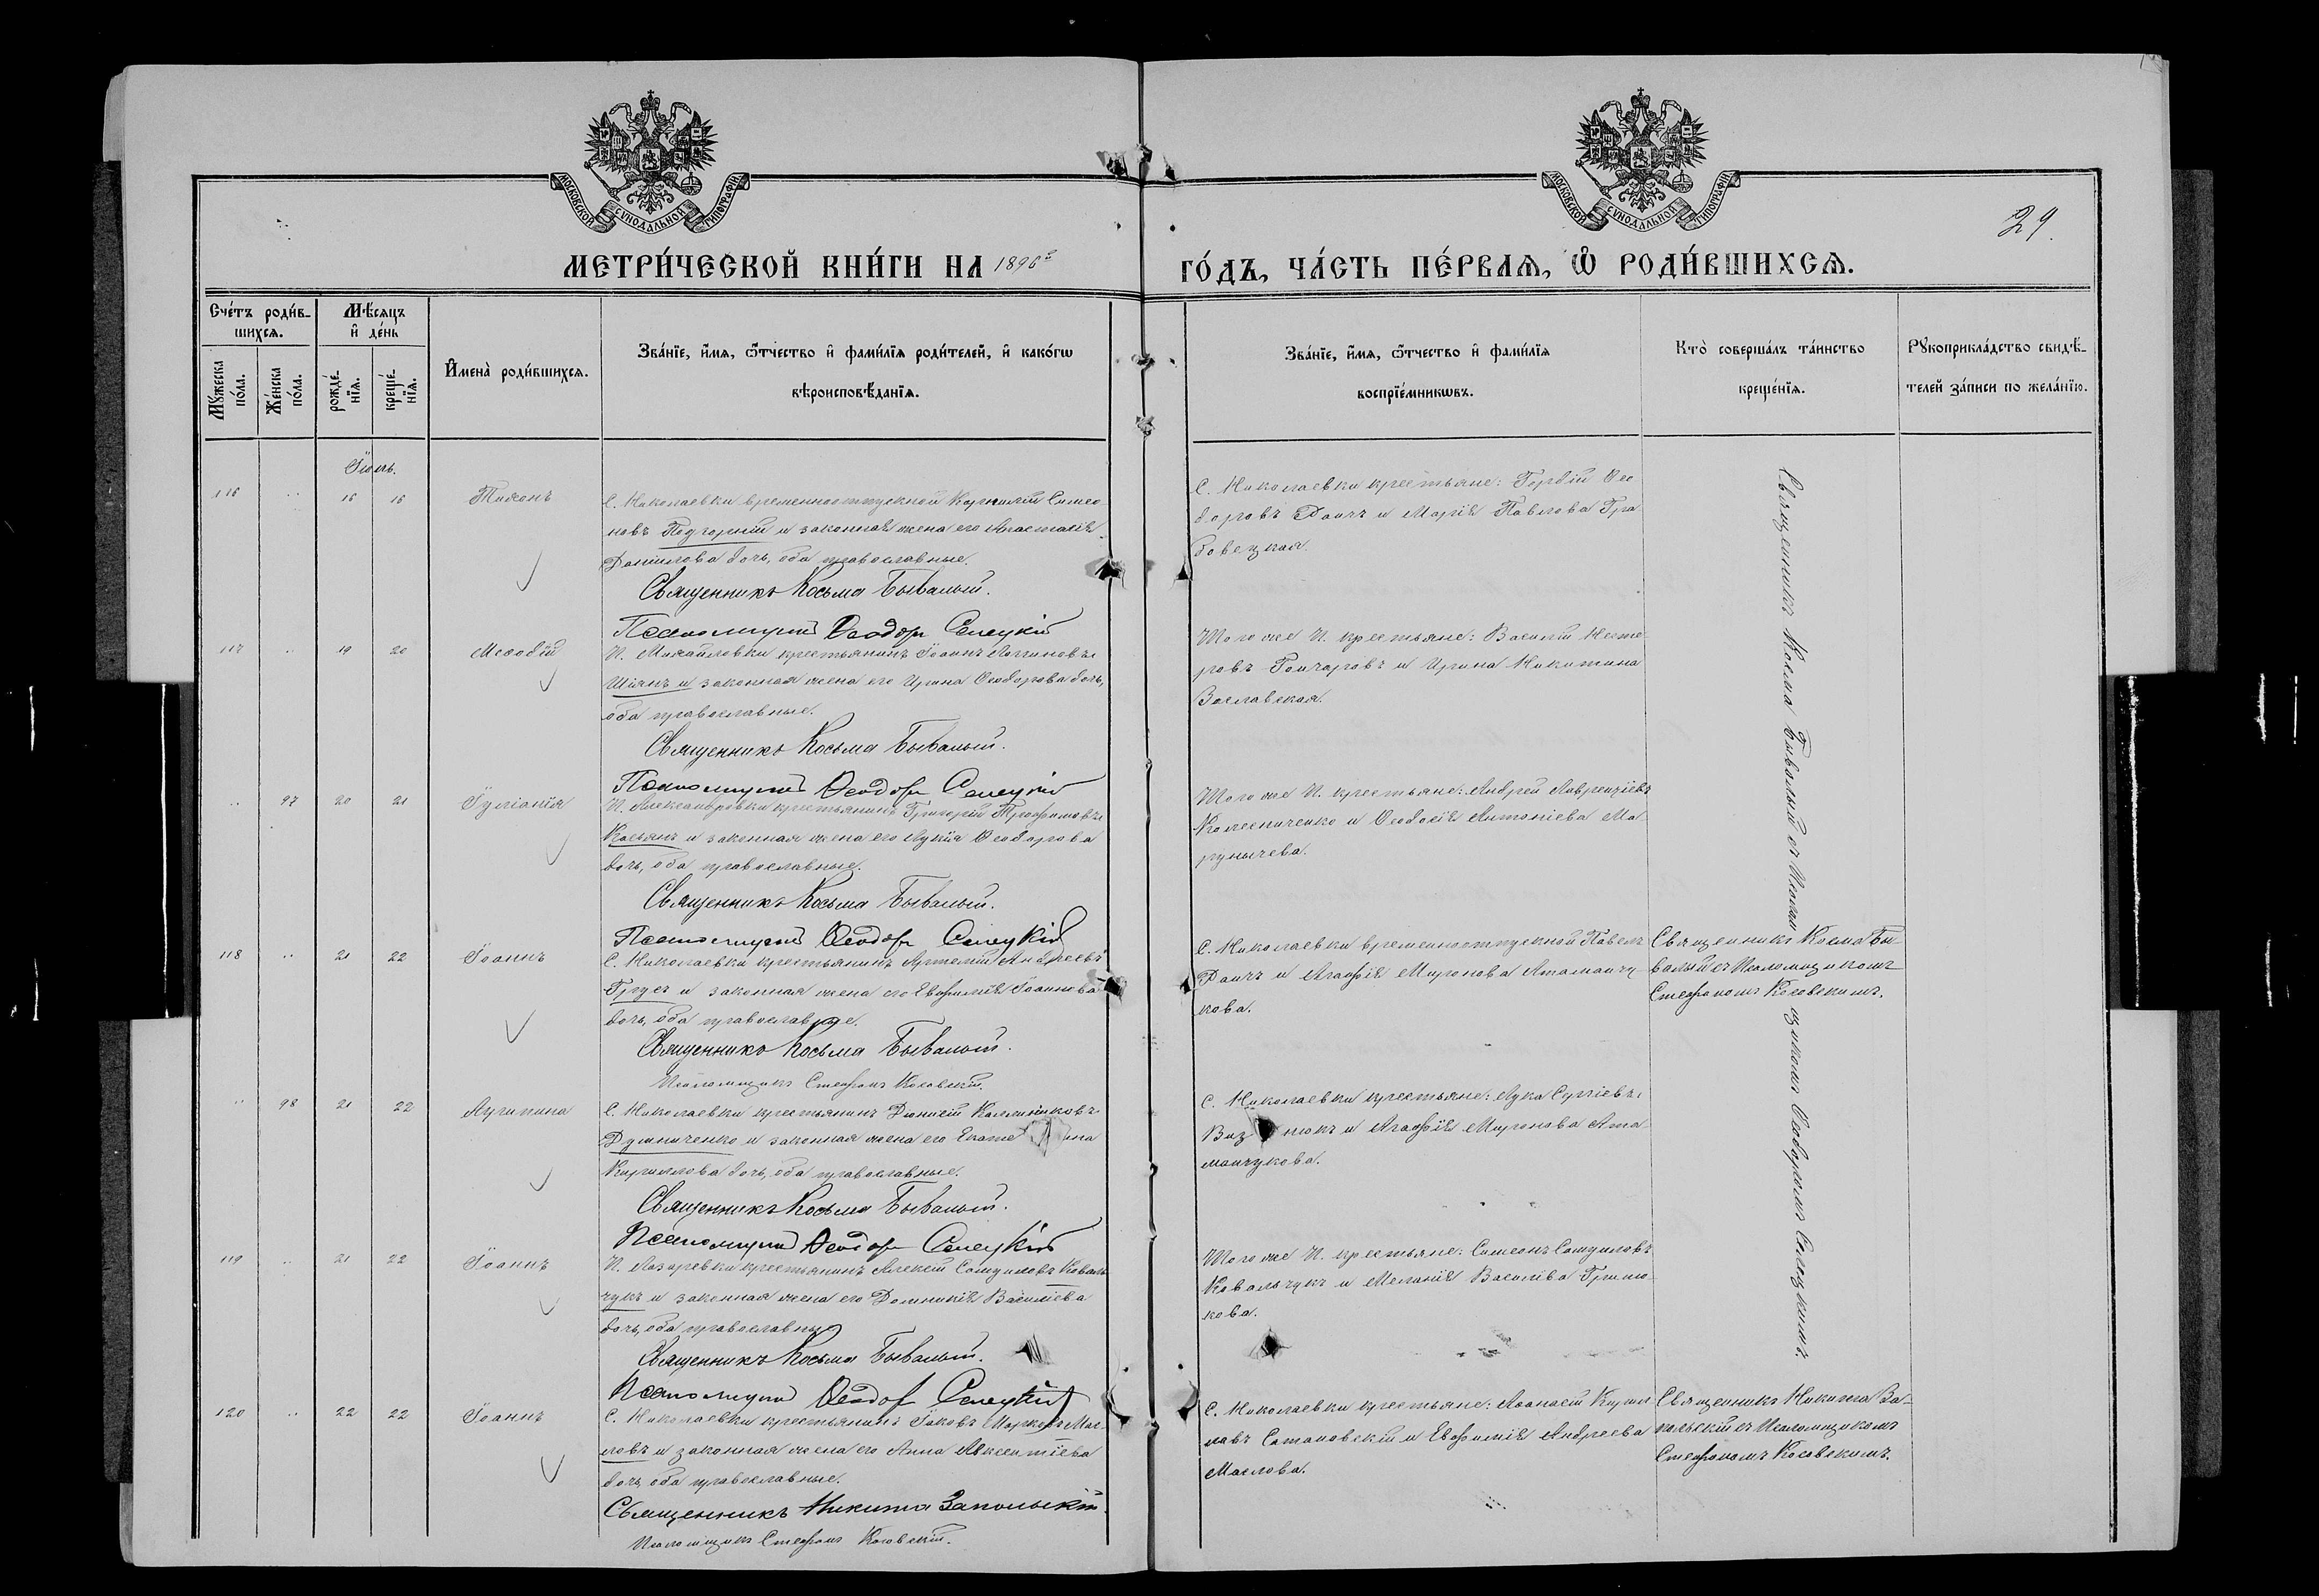 МОСКОВСКОЙ СУНОДАЛЬНОЙ ТИПОГРАФІИ
МОСКОВСКОЙ СУНОДАЛЬНОЙ ТИПОГРАФІИ
29.
МЕТРИ́ЧЕСКОЙ КНИ́ГИ НА 1896 го́дъ, ча́сть пе́рваѧ, ѽ роди́вшихсѧ.
Сче́тъ роди́в-
шихсѧ.
Мѣ́сѧцъ
и҆ де́нь
Мꙋ́жеска по́ла.
Же́нска по́ла.
рожде́-
нїѧ.
креще́-
нїѧ.
И҆мена̀ роди́вшихсѧ.
Зва́нїе, и҆́мѧ, ѿтчество и҆ фами́лїѧ роди́телей, и҆ како́гѡ
вѣроисповѣ́данїѧ.
Зва́нїе, и҆́мѧ, ѿтчество и҆ фами́лїѧ
воспрїе́мникѡвъ.
Кто̀ соверша́лъ та́инство
креще́нїѧ.
Рꙋкоприкла́дство свидѣ́-
телей за́писи по жела́нїю.
Іюнь.
116 " 16 16 Тихонъ
С. Николаевки временноотпускной Корнилій Симео-
новъ Подгорний и законная жена его Анастасія
Даниилова дочь, оба православные.
Священникъ Косьма Бывалый.
Псаломщикъ Ѳеодоръ Селецкій
С. Николаевки крестьяне: Гордій Ѳео
доровъ Раичъ и Марія Павлова Гра
бовецкая.
117 " 19 20 Меѳодій
П. Михайловки крестьянинъ Іоаннъ Логиновъ
Шіянъ и законная жена его Ирина Ѳеодорова дочь,
оба православные.
Священникъ Косьма Бывалый.
Псаломщикъ Ѳеодоръ Селецкій
Того же П. крестьяне: Василій Несте-
ровъ Гончаровъ и Ирина Никитина
Заславская.
" 97 20 21 Іуліанія
П. Александровки крестьянинъ Григорій Трофимовъ
Касьянъ и законная жена его Лукія Ѳеодорова
дочь, оба православные.
Священникъ Косьма Бывалый.
Псаломщикъ Ѳеодоръ Селецкій
Того же П. крестьяне: Андрей Лаврентіевъ
Колесниченко и Ѳеодосія Антоніева Ма-
рунычева.
118 " 21 22 Іоаннъ
С. Николаевки крестьянинъ Артемій Андреевъ
Грусъ и законная жена его Евфимія Іоаннова
дочь, оба православные.
Священникъ Косьма Бывалый.
Псаломщикъ Стефанъ Косовскій.
С. Николаевки временноотпускной Павелъ
Раичъ и Агафія Миронова Атаманчу-
кова.
Священникъ Косма Бы-
валый съ Псаломщикомъ
Стефаномъ Косовскимъ.
" 98 21 22 Агрипина
С. Николаевки крестьянинъ Діонисій Каллиниковъ
Думниченко и законная жена его Екате ина
Кириллова дочь, оба православные.
Священникъ Косьма Бывалый.
Псаломщикъ Ѳеодоръ Селецкій
С. Николаевки крестьяне: Лука Сергіевъ
Виз нюкъ и Агафія Миронова Ата
манчукова.
119 " 21 22 Іоаннъ
П. Лазаревки крестьянинъ Алексій Самуиловъ Коваль
чукъ и законная жена его Домникія Василіева
дочь, оба православные
Священникъ Косьма Бывалый.
Псаломщикъ Ѳеодоръ Селецкій
Того же П. крестьяне: Симеонъ Самуиловъ
Ковальчукъ и Меланія Василіева
кова.
120 " 22 22 Іоаннъ
С. Николаевки крестьянинъ Іаковъ Марковъ Мас-
ловъ и законная жена его Анна Авксентіева
дочь, оба православные.
Священникъ Никита Запольскій
Псаломщикъ Стефанъ Косовскій.
С. Николаевки крестьяне: Аѳанасій Кирил
ловъ Сатановскій и Евфимія Андреева
Маслова.
Священникъ Никита За-
польскій съ Псаломщикомъ
Стефаномъ Косовскимъ.
Священникъ Косма Бывалый съ Псаломщикомъ Ѳеодоромъ Селецкимъ.